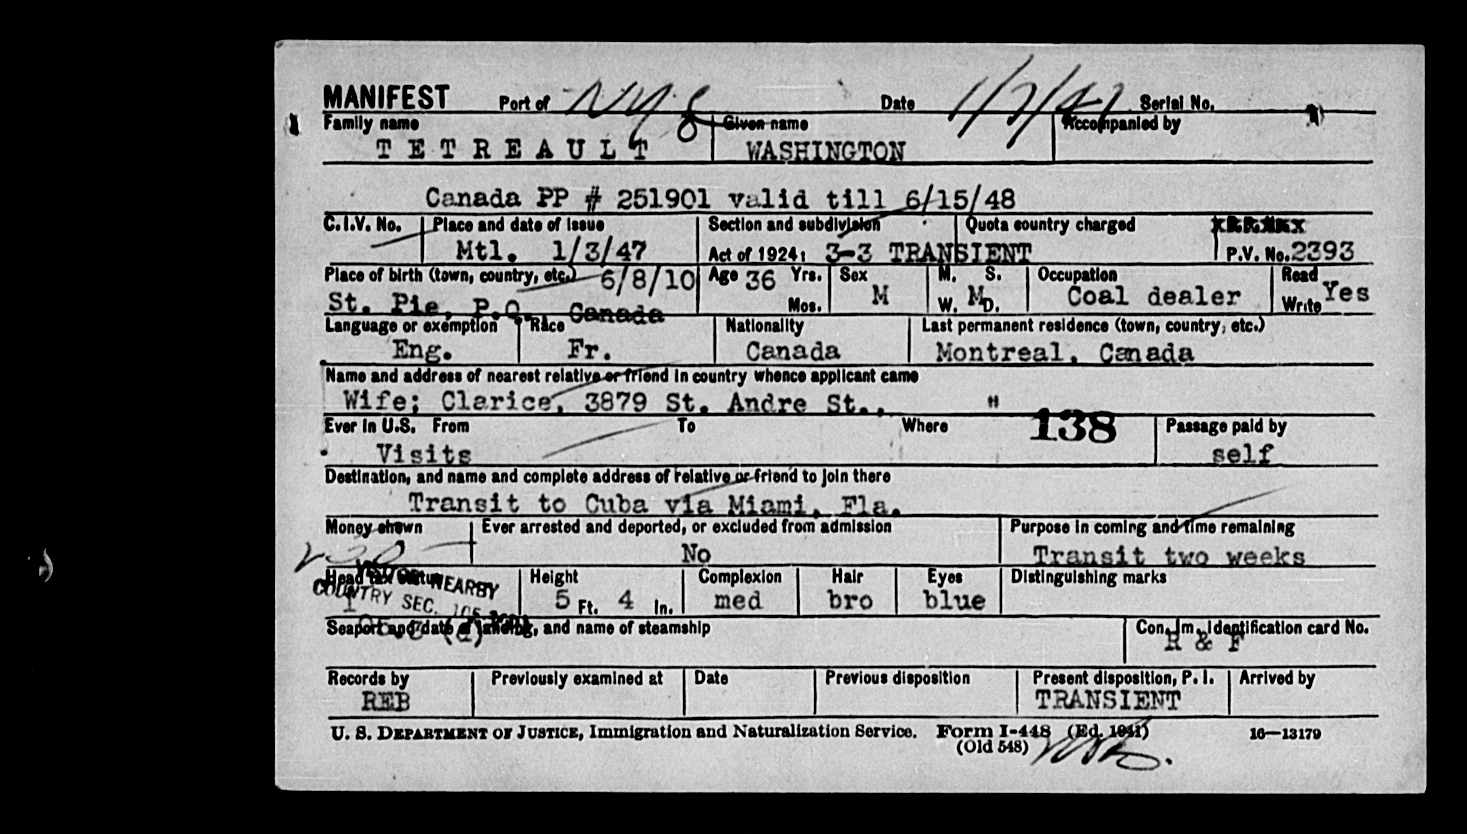 MANIFEST Port of NYC Date 1/7/47 Serial No.
Family name Given name Accompanied by
T E T R E A U L T WASHINGTON
Canada PP # 251901 valid till 6/15/48
C.I.V. No. Place and date of issue Section and subdivision Quota country charged
Mtl. 1/3/47 Act of 1924: 3-3 TRANSIENT P.V. No. 2393
Place of birth (town, country, etc.) 6/8/10 Age 36 Yrs. Sex M. S. Occupation Read
St. Pie, P.Q. Canada Mos. M W. M D. Coal dealer Write Yes
Language or exemption Race Nationality Last permanent residence (town, country, etc.)
Eng. Fr. Canada Montreal, Canada
Name and address of nearest relative or friend in country whence applicant came
Wife; Clarice, 3879 St. Andre St., "
Ever in U.S. From To Where 138 Passage paid by
Visits self
Destination, and name and complete address of relative or friend to join there
Transit to Cuba via Miami, Fla.
Money shown Ever arrested and deported, or excluded from admission Purpose in coming and time remaining
230 No Transit two weeks
Head tax status Height Complexion Hair Eyes Distinguishing marks
NEARBY
COUNTRY SEC. 5 Ft. 4 In. med bro blue
Seaport and date of landing, and name of steamship Con. Im. Identification card No.
R & F
Records by Previously examined at Date Previous disposition Present disposition, P. I. Arrived by
REB TRANSIENT
U. S. DEPARTMENT OF JUSTICE, Immigration and Naturalization Service. Form I-448 (Ed. 1941) 16—13179
(Old 548)